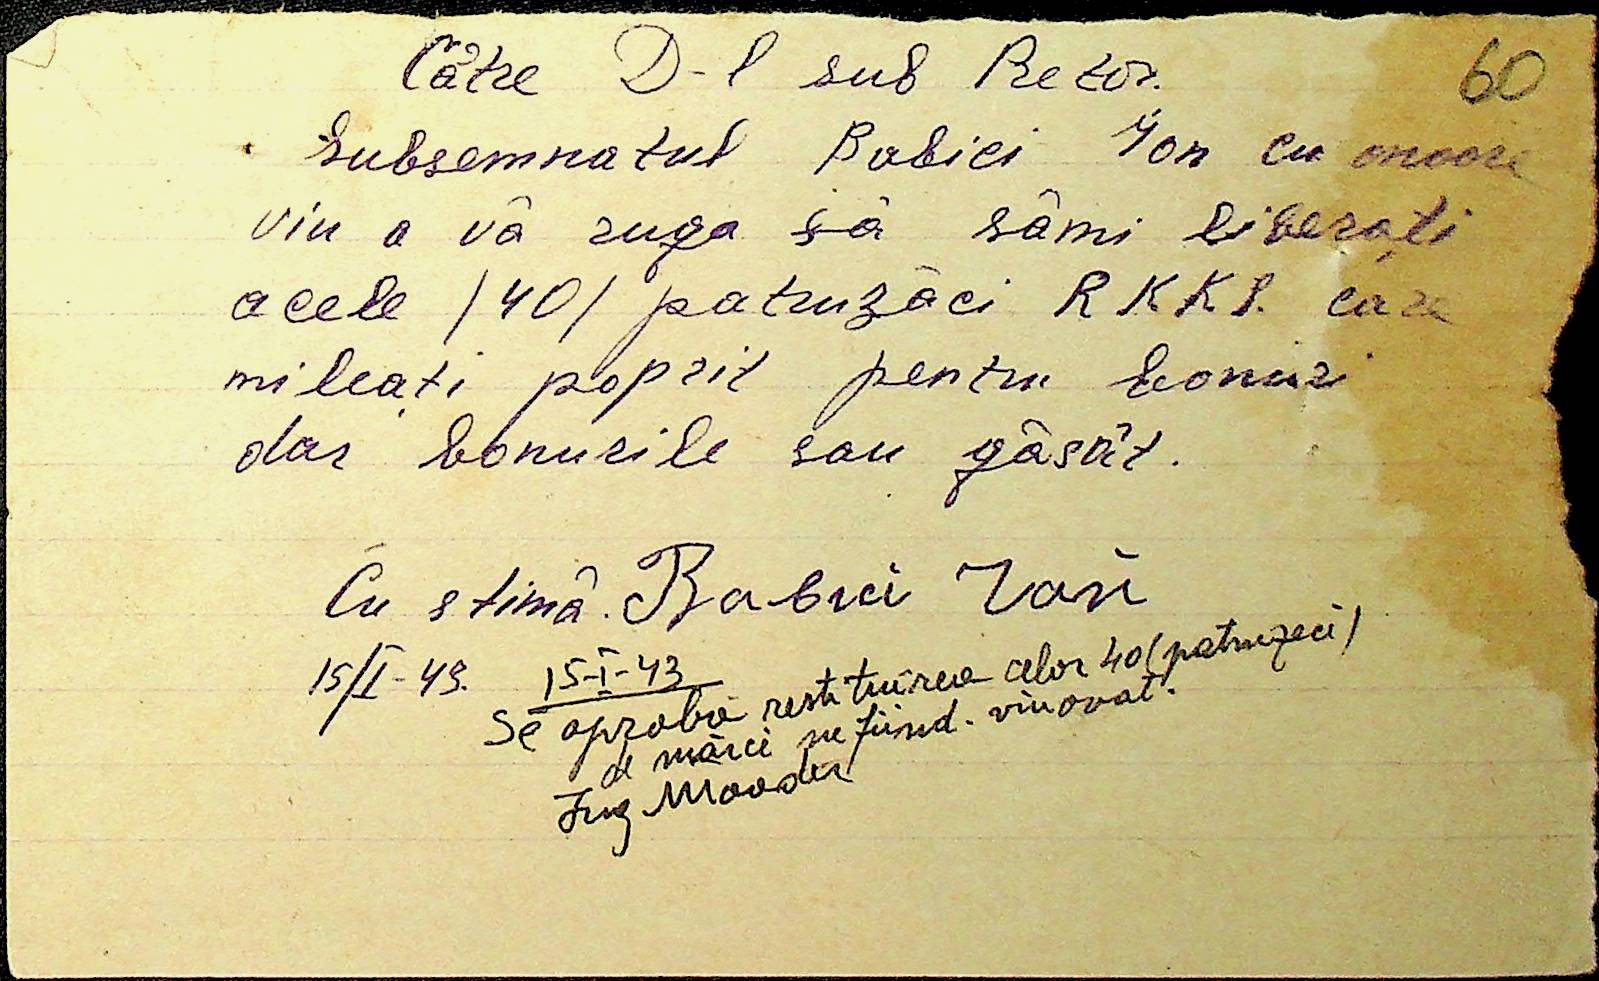 Către D-l sub Pretor.
60
Subsemnatul Babici Ion cu onoare
vin a vă ruga să sâmi liberați
acele /40/ patruzăci RKKS. care
mileați poprit pentru bonuri
dar bonurile sau găsât.
Cu stimă. Babici Ion
15/I-43. 15-I-43
Se aprobă restituirea celor 40 (patruzeci)
de mărci ne fiind. vinovat.